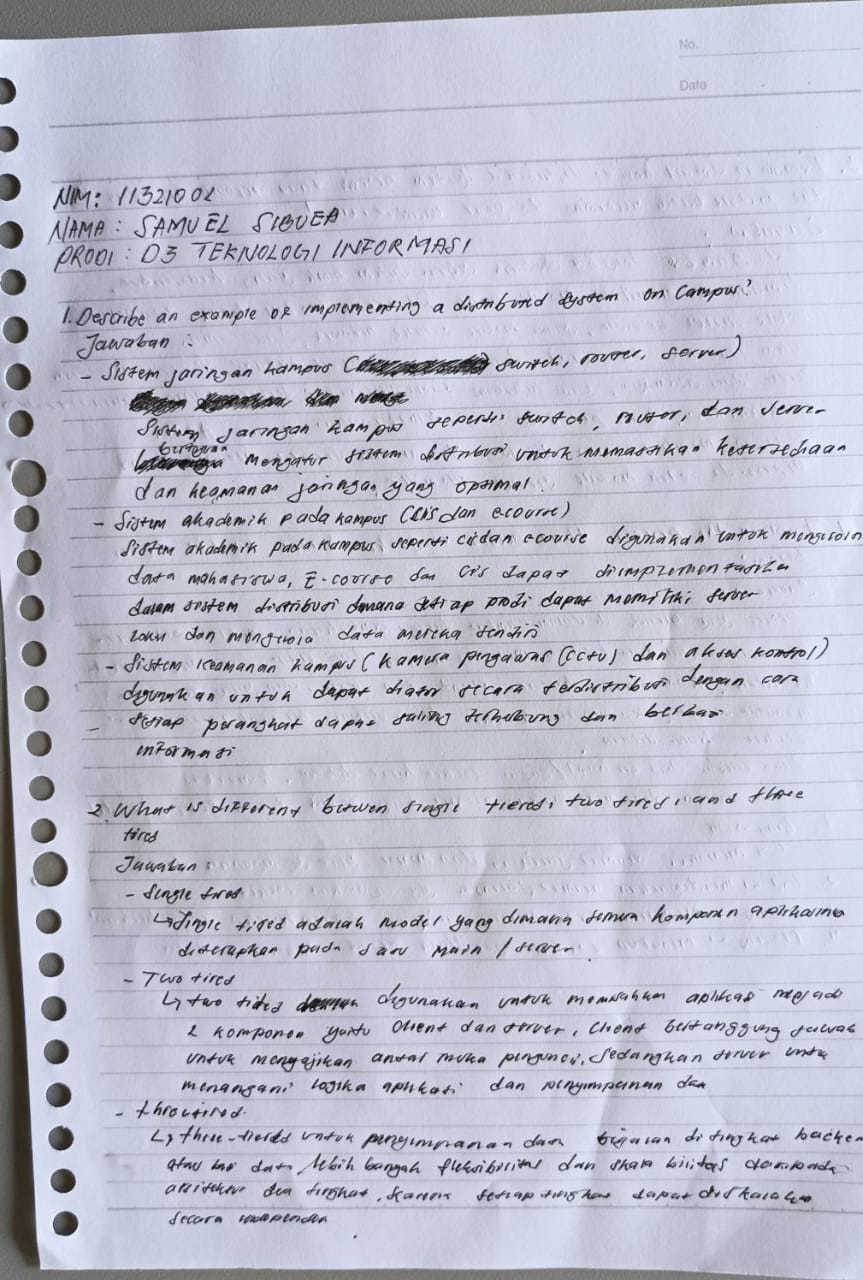 No.
Date
NIM: 11321002
NAMA : SAMUEL SIBUEA
PRODI : D3 TEKNOLOGI INFORMASI
1. Describe an example of implementing a distributed system on Campus?
Jawaban :
- Sistem jaringan kampus ( switch, router, server)
Sistem jaringan kampus seperti switch, router, dan server
bertujuan mengatur sistem distribusi untuk memastikan ketersediaan
dan keamanan jaringan yang optimal.
- Sistem akademik pada kampus (CIS dan ecourse)
Sistem akademik pada kampus seperti cis dan ecourse digunakan untuk mengelola
data mahasiswa, E-course dan CIS dapat diimplementasika
dalam sistem distribusi dimana setiap prodi dapat memiliki server
dan mengelola data mereka sendiri
- Sistem keamanan kampus (kamera pengawas (CCTV) dan akses kontrol)
digunakan untuk dapat diatur secara terdistribusi dengan cara
- setiap perangkat dapat saling terhubung dan berbagi
informasi
2. What is different betwen single tiered, two tired, and three
tired
Jawaban :
- Single tired
↳ Single tired adalah model yang dimana semua komponen aplikasinya
diterapkan pada satu main / server.
- Two tired
↳ two tides digunakan untuk memisahkan aplikasi mejadi
2 komponen yaitu client dan server, client bertanggung jawab
untuk mengajikan antar muka pengunci, sedangkan server untu
menangani logika aplikasi dan penyimpanan dan
- three tired.
↳ three-tieres untuk penyimpanan data di tingkat backen
atau data, lebih banyak fleksibilitas dan skalabilitas daripada
arsitektur dua tingkat, karena setiap tingkat dapat diskalakan
secara independen